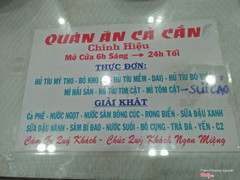 QUÁN ĂN CẢ CẦN
Chính Hiệu
Mở Cửa 6h Sáng → 24h Tối
THỰC ĐƠN:
HỦ TÍU MỸ THO - BÒ KHO - HỦ TÍU MỀM - DAI - HỦ TÍU BÒ
MÌ HẢI SẢN - HỦ TÍU TIM CẬT - MÌ TÔM CẬT - SỦI CẢO
GIẢI KHÁT
Cà PHÊ - NƯỚC NGỌT - NƯỚC SÂM ĐÓNG CÚC - RONG BIỂN - SỮA ĐẬU XANH
SỮA ĐẬU NÀNH - SÂM BÍ ĐAO - NƯỚC SUỐI - BÒ CỤNG - TRÀ ĐÁ - YẾN - C2
Cám Ơn Quý Khách - Chúc Quý Khách Ngon Miệng